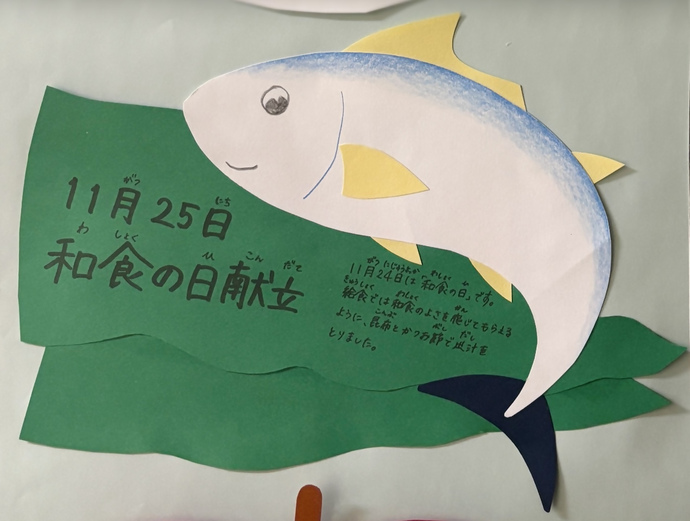 11月25日
和食の日献立
11月24日は「和食の日」です。
給食では和食のよさを感じてもらえる
ように、昆布とかつお節で出汁を
とりました。